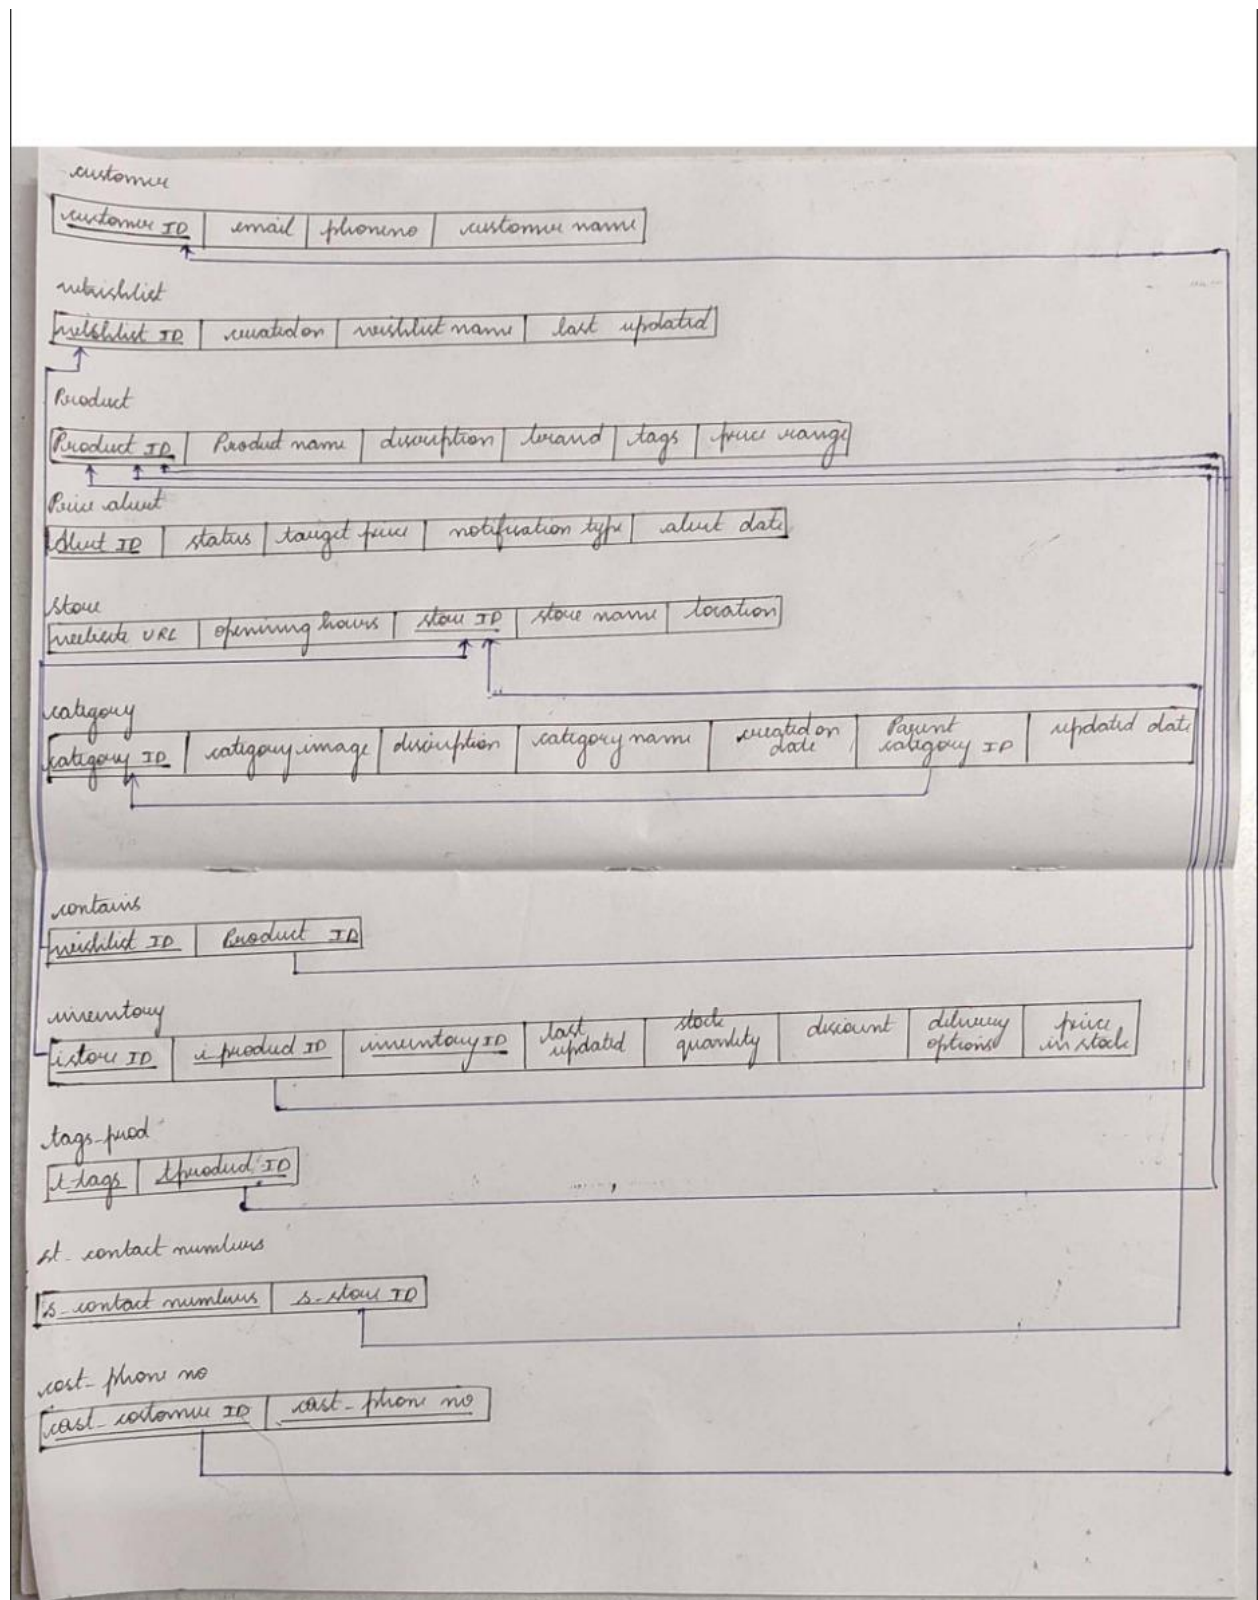 customer
customer ID | email | phoneno | customer name
wishlist
wishlist ID | created on | wishlist name | last updated
Product
Product ID | Product name | discription | brand | tags | price range
Price alert
Alert ID | status | target price | notification type | alert date
Store
website URL | opening hours | store ID | store name | location
category
category ID | category image | discription | category name | created on date | Parent category ID | updated date
contains
wishlist ID | Product ID
inventory
istore ID | i product ID | inventory ID | last updated | stock quantity | discount | delivery options | price in stock
tags-prod
t-tags | tproduct ID
st_contact numbers
s_contact numbers | s-store ID
cost_phone no
cost_costomer ID | cost_phone no